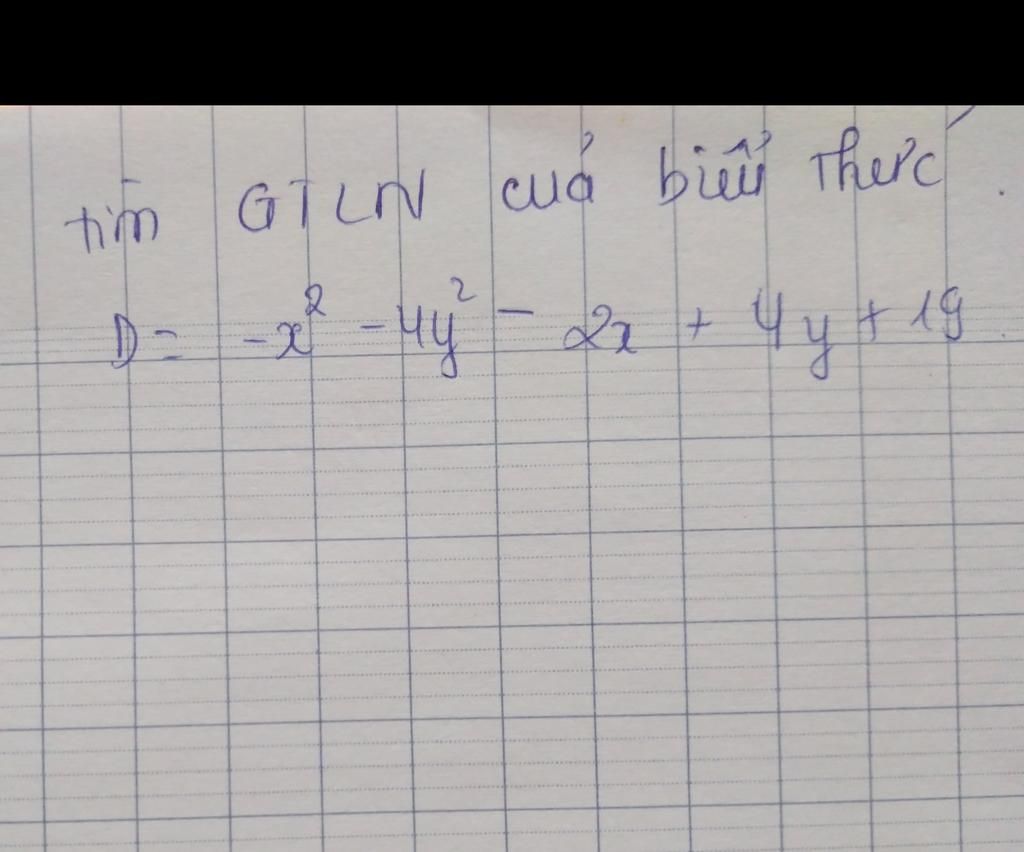 tìm GTLN cuả biểủ thức.
D = -x² - 4y² - 2x + 4y + 19.